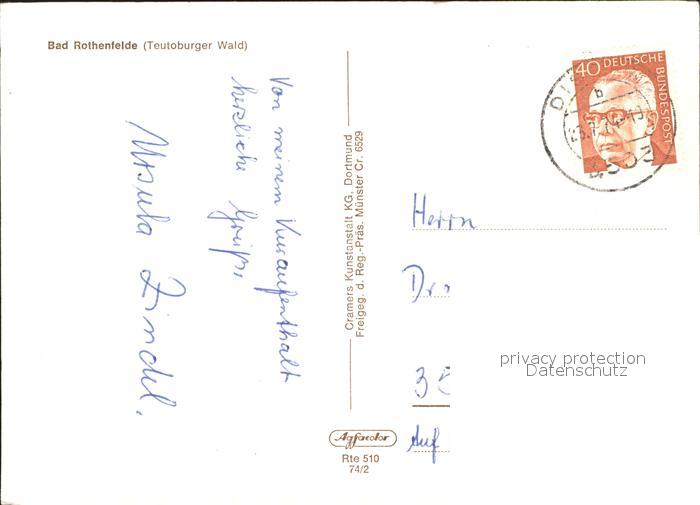 Bad Rothenfelde (Teutoburger Wald)
Von meinem Kuraufenthalt
herzliche Grüße,
Ursula Zindel.
Cramers Kunstanstalt KG., Dortmund
Freigeg. d. Reg.-Präs. Münster Cr. 6529
Agfacolor
Rte 510
74/2
40 DEUTSCHE
BUNDESPOST
4503
Herrn
Dr.
35
Auf
privacy protection
Datenschutz